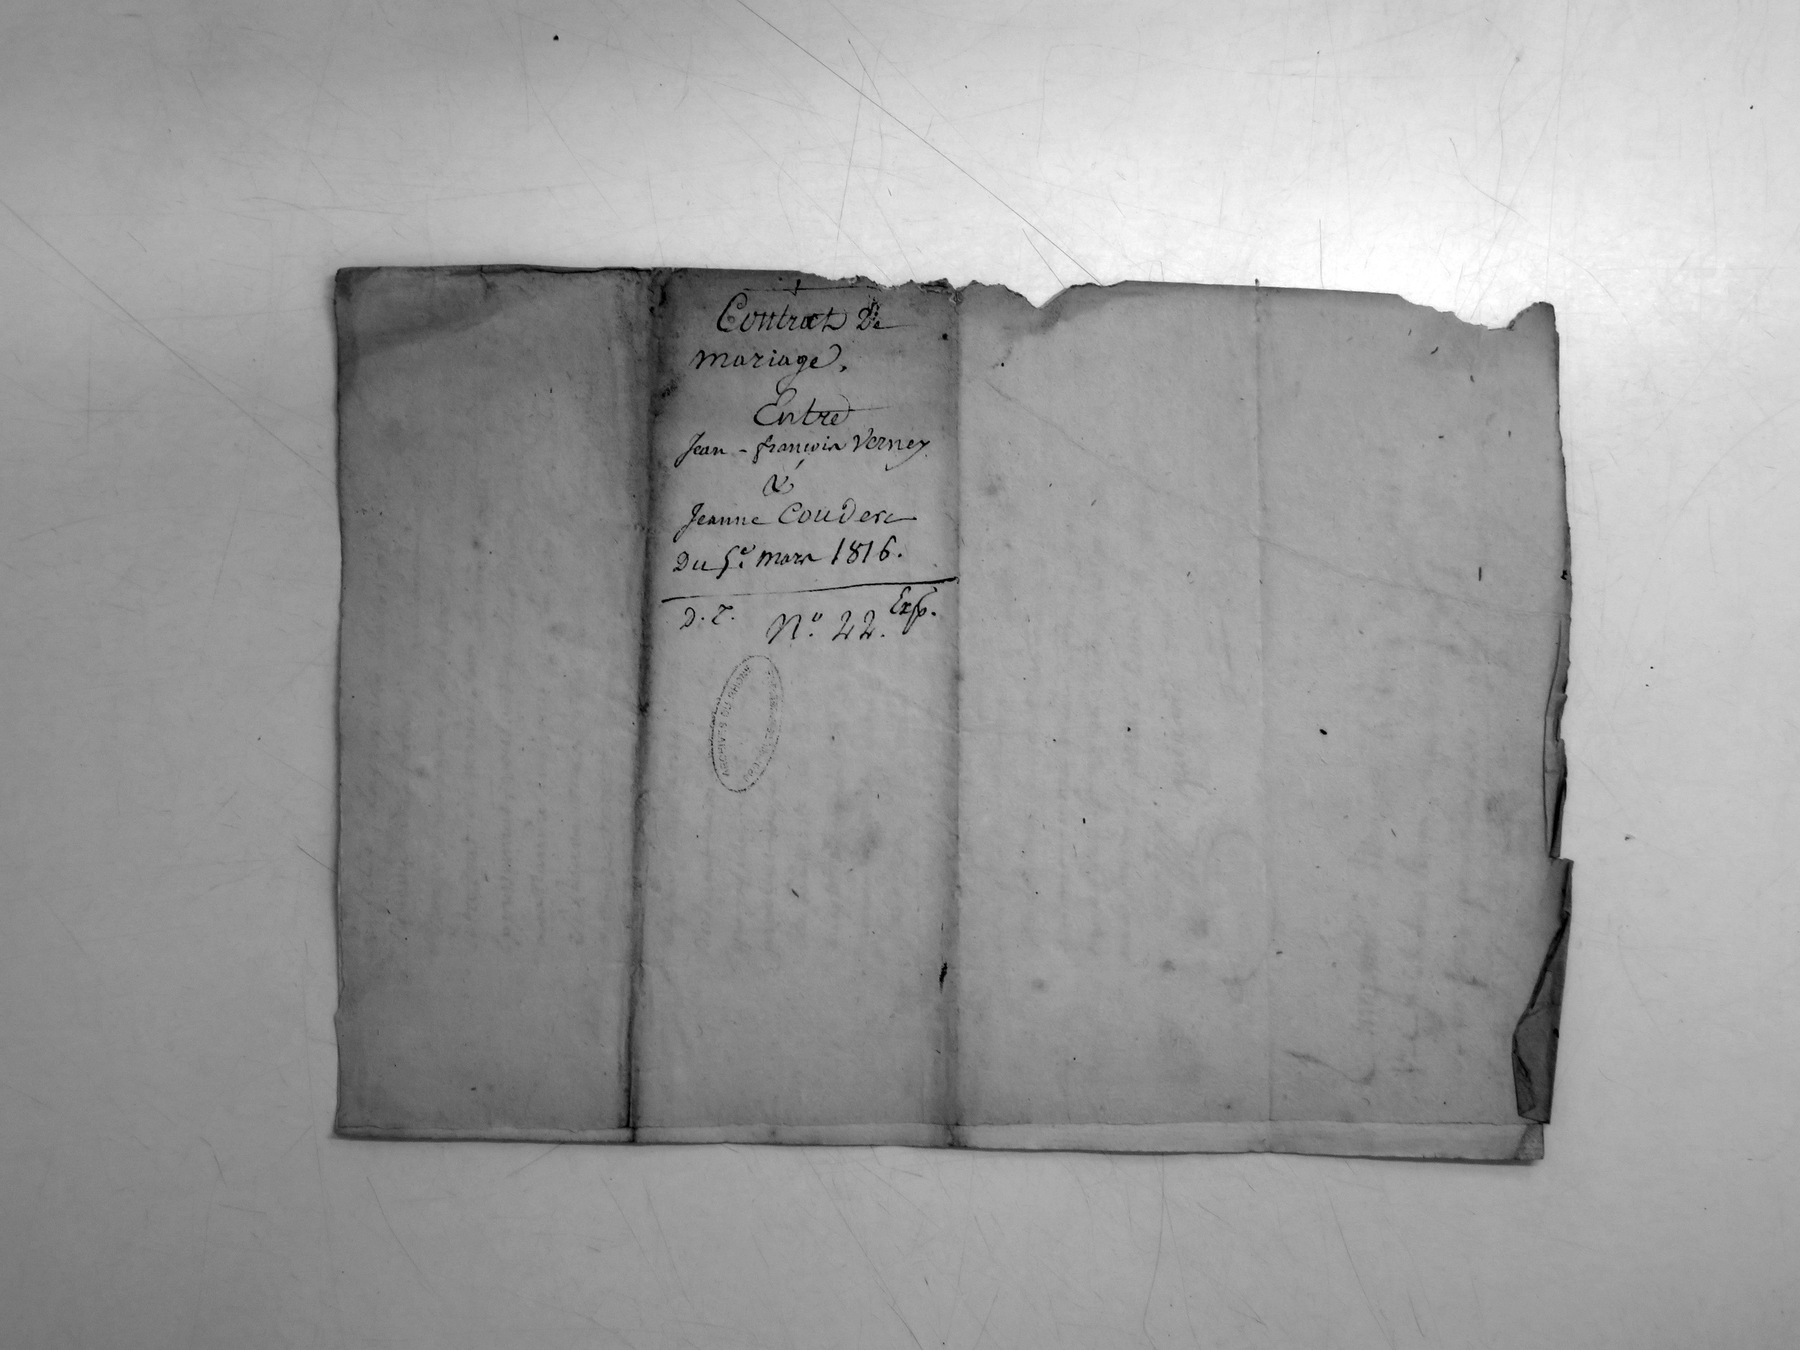 Contrat de
mariage,
Entre
Jean-françois Verney
&
Jeanne Couderc
Du 5e. mars 1816.
D. T. No. 22. Exp.
ARCHIVES DU RHONE